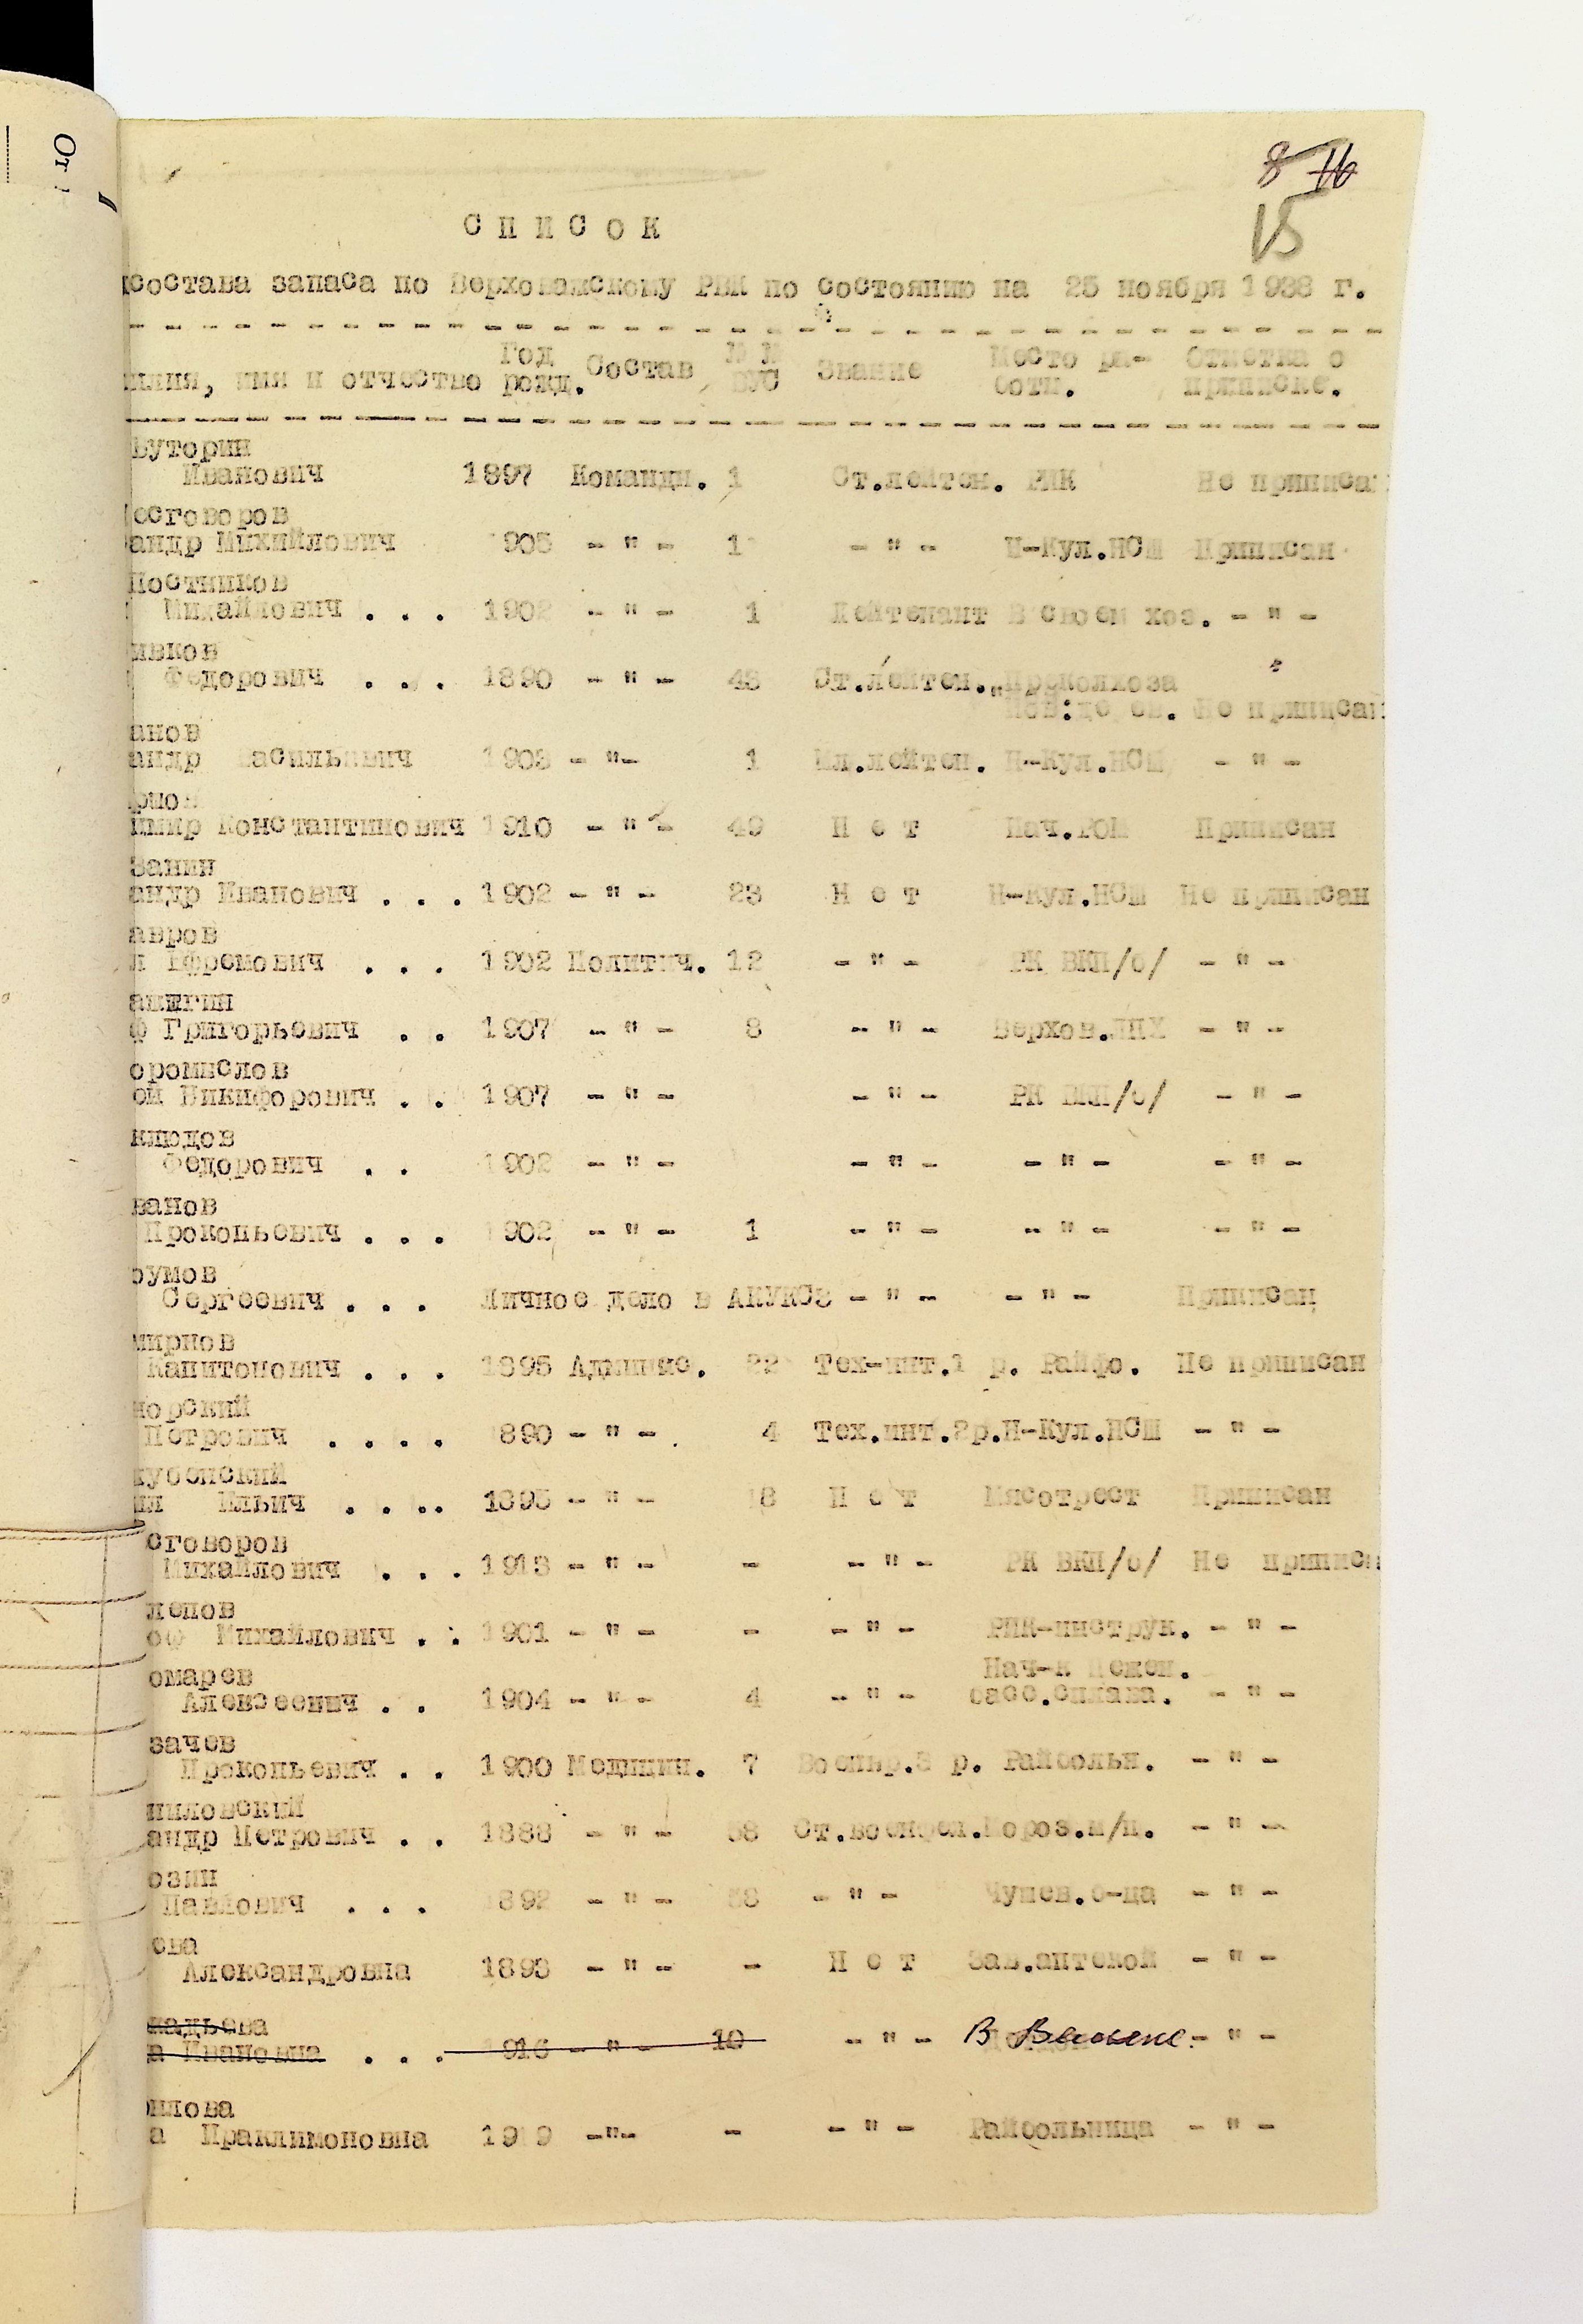 От
8 16
15
С П И С О К
состава запаса по Верховажскому РВК по состоянию на 25 ноября 1938 г.
Год Состав № № Звание Место ра- Отметка о
илия, имя и отчество рожд. ВУС боты. приписке.
Буторин
Иванович 1897 Командн. 1 Ст.лейтен. РИК Не приписан
остоворов
андр Михайлович 905 - " - 1 - " - Н-Кул.НСШ Приписан
Постников
Михайлович . . . 1902 - " - 1 Лейтенант В своем хоз. - " -
ивков
Федорович . . . 1890 - " - 43 Ст.лейтен. Предколхоза
Нов:дерев. Не приписан
анов
андр Васильевич 1903 - "- 1 Мл.лейтен. Н-Кул.НСШ - " -
рмов
имир Константинович 1910 - " - 49 Н е т Нач.РОМ Приписан
Занин
андр Иванович . . . 1902 - " - 23 Н е т Н-Кул.НСШ Не приписан
авров
л Ефремович . . . 1902 Политич. 12 - " - РК ВКП/б/ - " -
аншгин
ф Григорьевич . . 1907 - " - 8 - " - Верхов.ЛПХ - " -
оромыслов
ой Никифорович . . 1907 - " - - " - РК ВКП/б/ - " -
клюдов
Федорович . . 1902 - " - - " - - " - - " -
ванов
Прокопьевич . . . 902 - " - 1 - " - - " - - " -
румов
Сергеевич . . . Личное дело в АКУКСЗ - " - - " - Приписан
мирнов
Капитонович . . . 1895 Админис. 22 Тех-инт.1 р. Райфо. Не приписан
норский
Петрович . . . . 890 - " - 4 Тех.инт.2р.Н-Кул.НСШ - " -
кубенский
ил Ильич . . . . 1895 - " - 18 Н е т Мясотрест Приписан
стоворов
Михайлович . . . 1913 - " - - - " - РК ВКП/б/ Не приписан
лепов
оф Михайлович . . 1901 - " - - - " - РИК-инструк. - " -
Нач-к Пежен.
омарев
Алексеевич . . 1904 - " - 4 - " - басс.сплава. - " -
зачев
Прокопьевич . . 1900 Медицин. 7 Военвр.3 р. Райбольн. - " -
ниловский
андр Петрович . . 1888 - " - 58 Ст.военфел.Мороз.м/п. - " -
озин
Павлович . . . 892 - " - 58 - " - Чушев.б-ца - " -
ева
Александровна 1893 - " - - Н е т Зав.аптекой - " -
кадьева
а Ивановна . . . 916 - " - 10 - " - В Вельске. - " -
илова
а Праклимоновна 1919 -"- - - " - Райбольница - " -